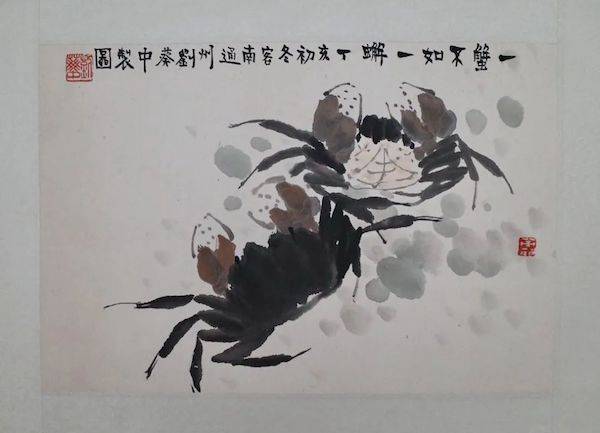 一蟹不如一蠏丁亥初冬客南通州劉蔡中製圖